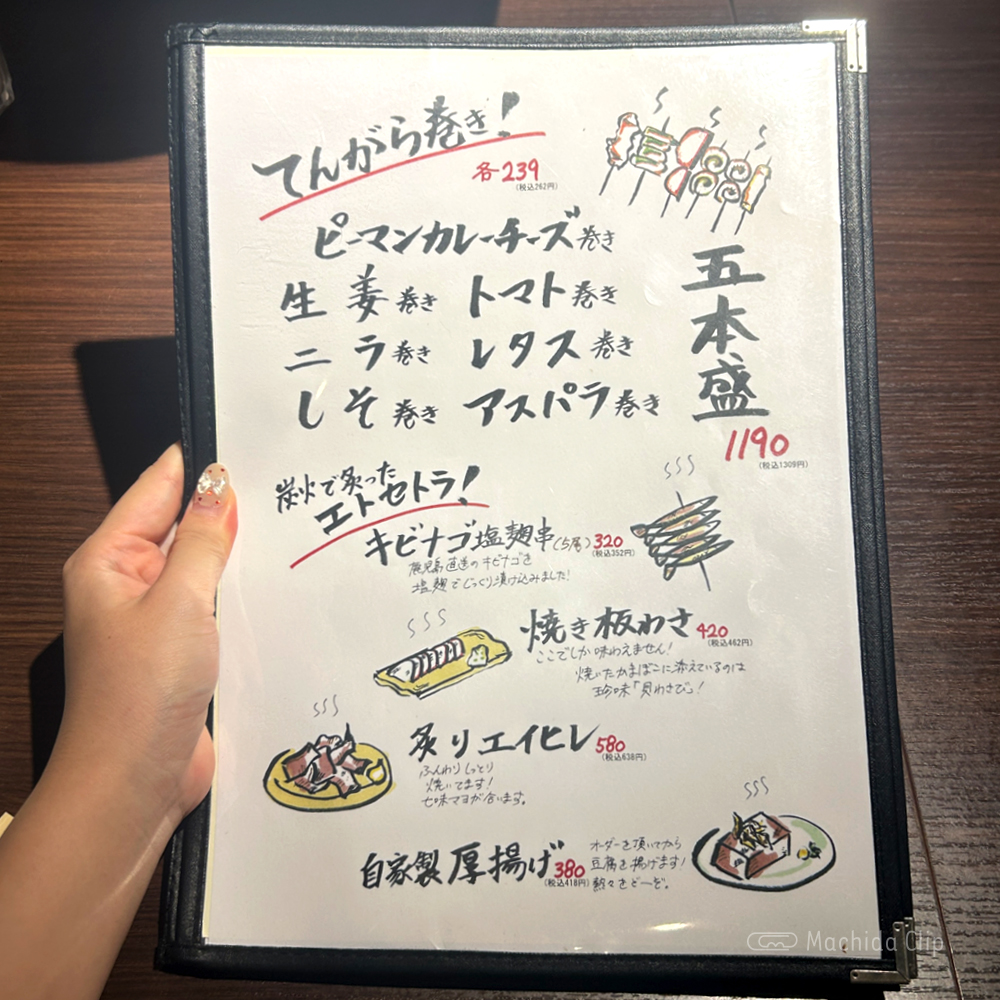 てんがら巻き!
各239
(税込262円)
ピーマンカレーチーズ巻き
生姜巻き トマト巻き
ニラ巻き レタス巻き
しそ巻き アスパラ巻き
五本盛
1190
(税込1309円)
炭火で炙った
エトセトラ!
キビナゴ塩麹串(5尾)320
(税込352円)
鹿児島直送のキビナゴを
塩麹でじっくり漬け込みました!
焼き板わさ420
(税込462円)
ここでしか味わえません!
焼いたかまぼこに添えているのは
珍味「貝わさび」!
炙りエイヒレ580
(税込638円)
ふんわりしっとり
焼いてます!
七味マヨが合います。
自家製厚揚げ380
(税込418円)
オーダーを頂いてから
豆腐を揚げます!
熱々をどーぞ。
Machida Clip